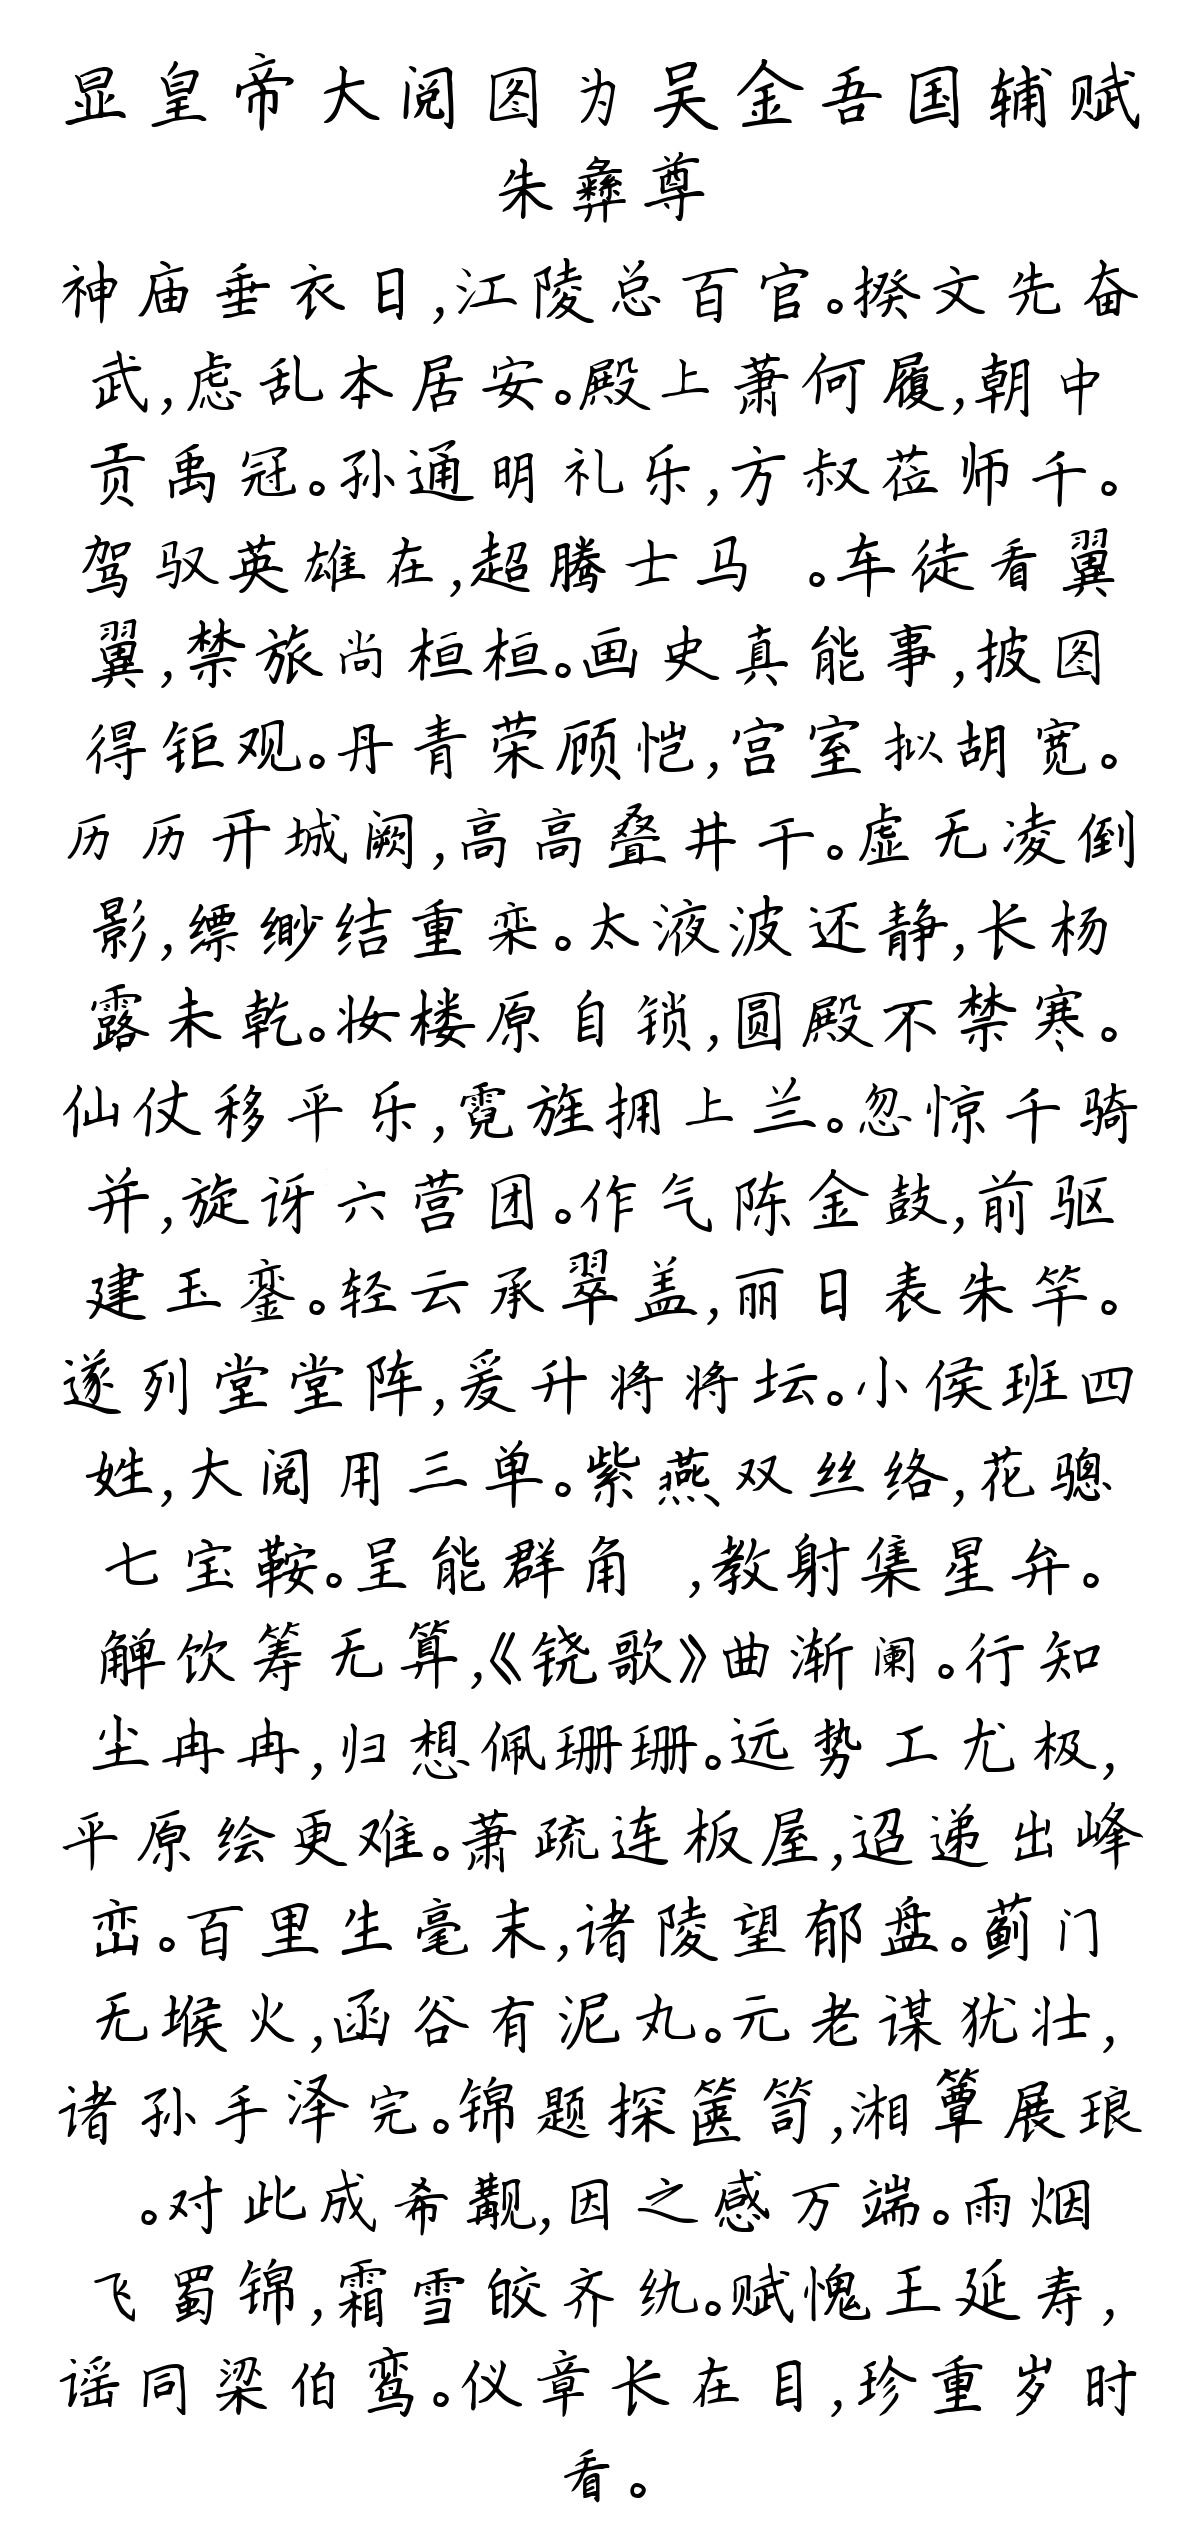 显皇帝大阅图为吴金吾国辅赋
朱彝尊
神庙垂衣日,江陵总百官。揆文先奋
武,虑乱本居安。殿上萧何履,朝中
贡禹冠。孙通明礼乐,方叔莅师千。
驾驭英雄在,超腾士马 。车徒看翼
翼,禁旅尚桓桓。画史真能事,披图
得钜观。丹青荣顾恺,宫室拟胡宽。
历历开城阙,高高叠井干。虚无凌倒
影,缥缈结重栾。太液波还静,长杨
露未乾。妆楼原自锁,圆殿不禁寒。
仙仗移平乐,霓旌拥上兰。忽惊千骑
并,旋讶六营团。作气陈金鼓,前驱
建玉銮。轻云承翠盖,丽日表朱竿。
遂列堂堂阵,爰升将将坛。小侯班四
姓,大阅用三单。紫燕双丝络,花骢
七宝鞍。呈能群角 ,教射集星弁。
觯饮筹无算,《铙歌》曲渐阑。行知
尘冉冉,归想佩珊珊。远势工尤极,
平原绘更难。萧疏连板屋,迢递出峰
峦。百里生毫末,诸陵望郁盘。蓟门
无堠火,函谷有泥丸。元老谋犹壮,
诸孙手泽完。锦题探箧笥,湘簟展琅
。对此成希觏,因之感万端。雨烟
飞蜀锦,霜雪皎齐纨。赋愧王延寿,
谣同梁伯鸾。仪章长在目,珍重岁时
看。